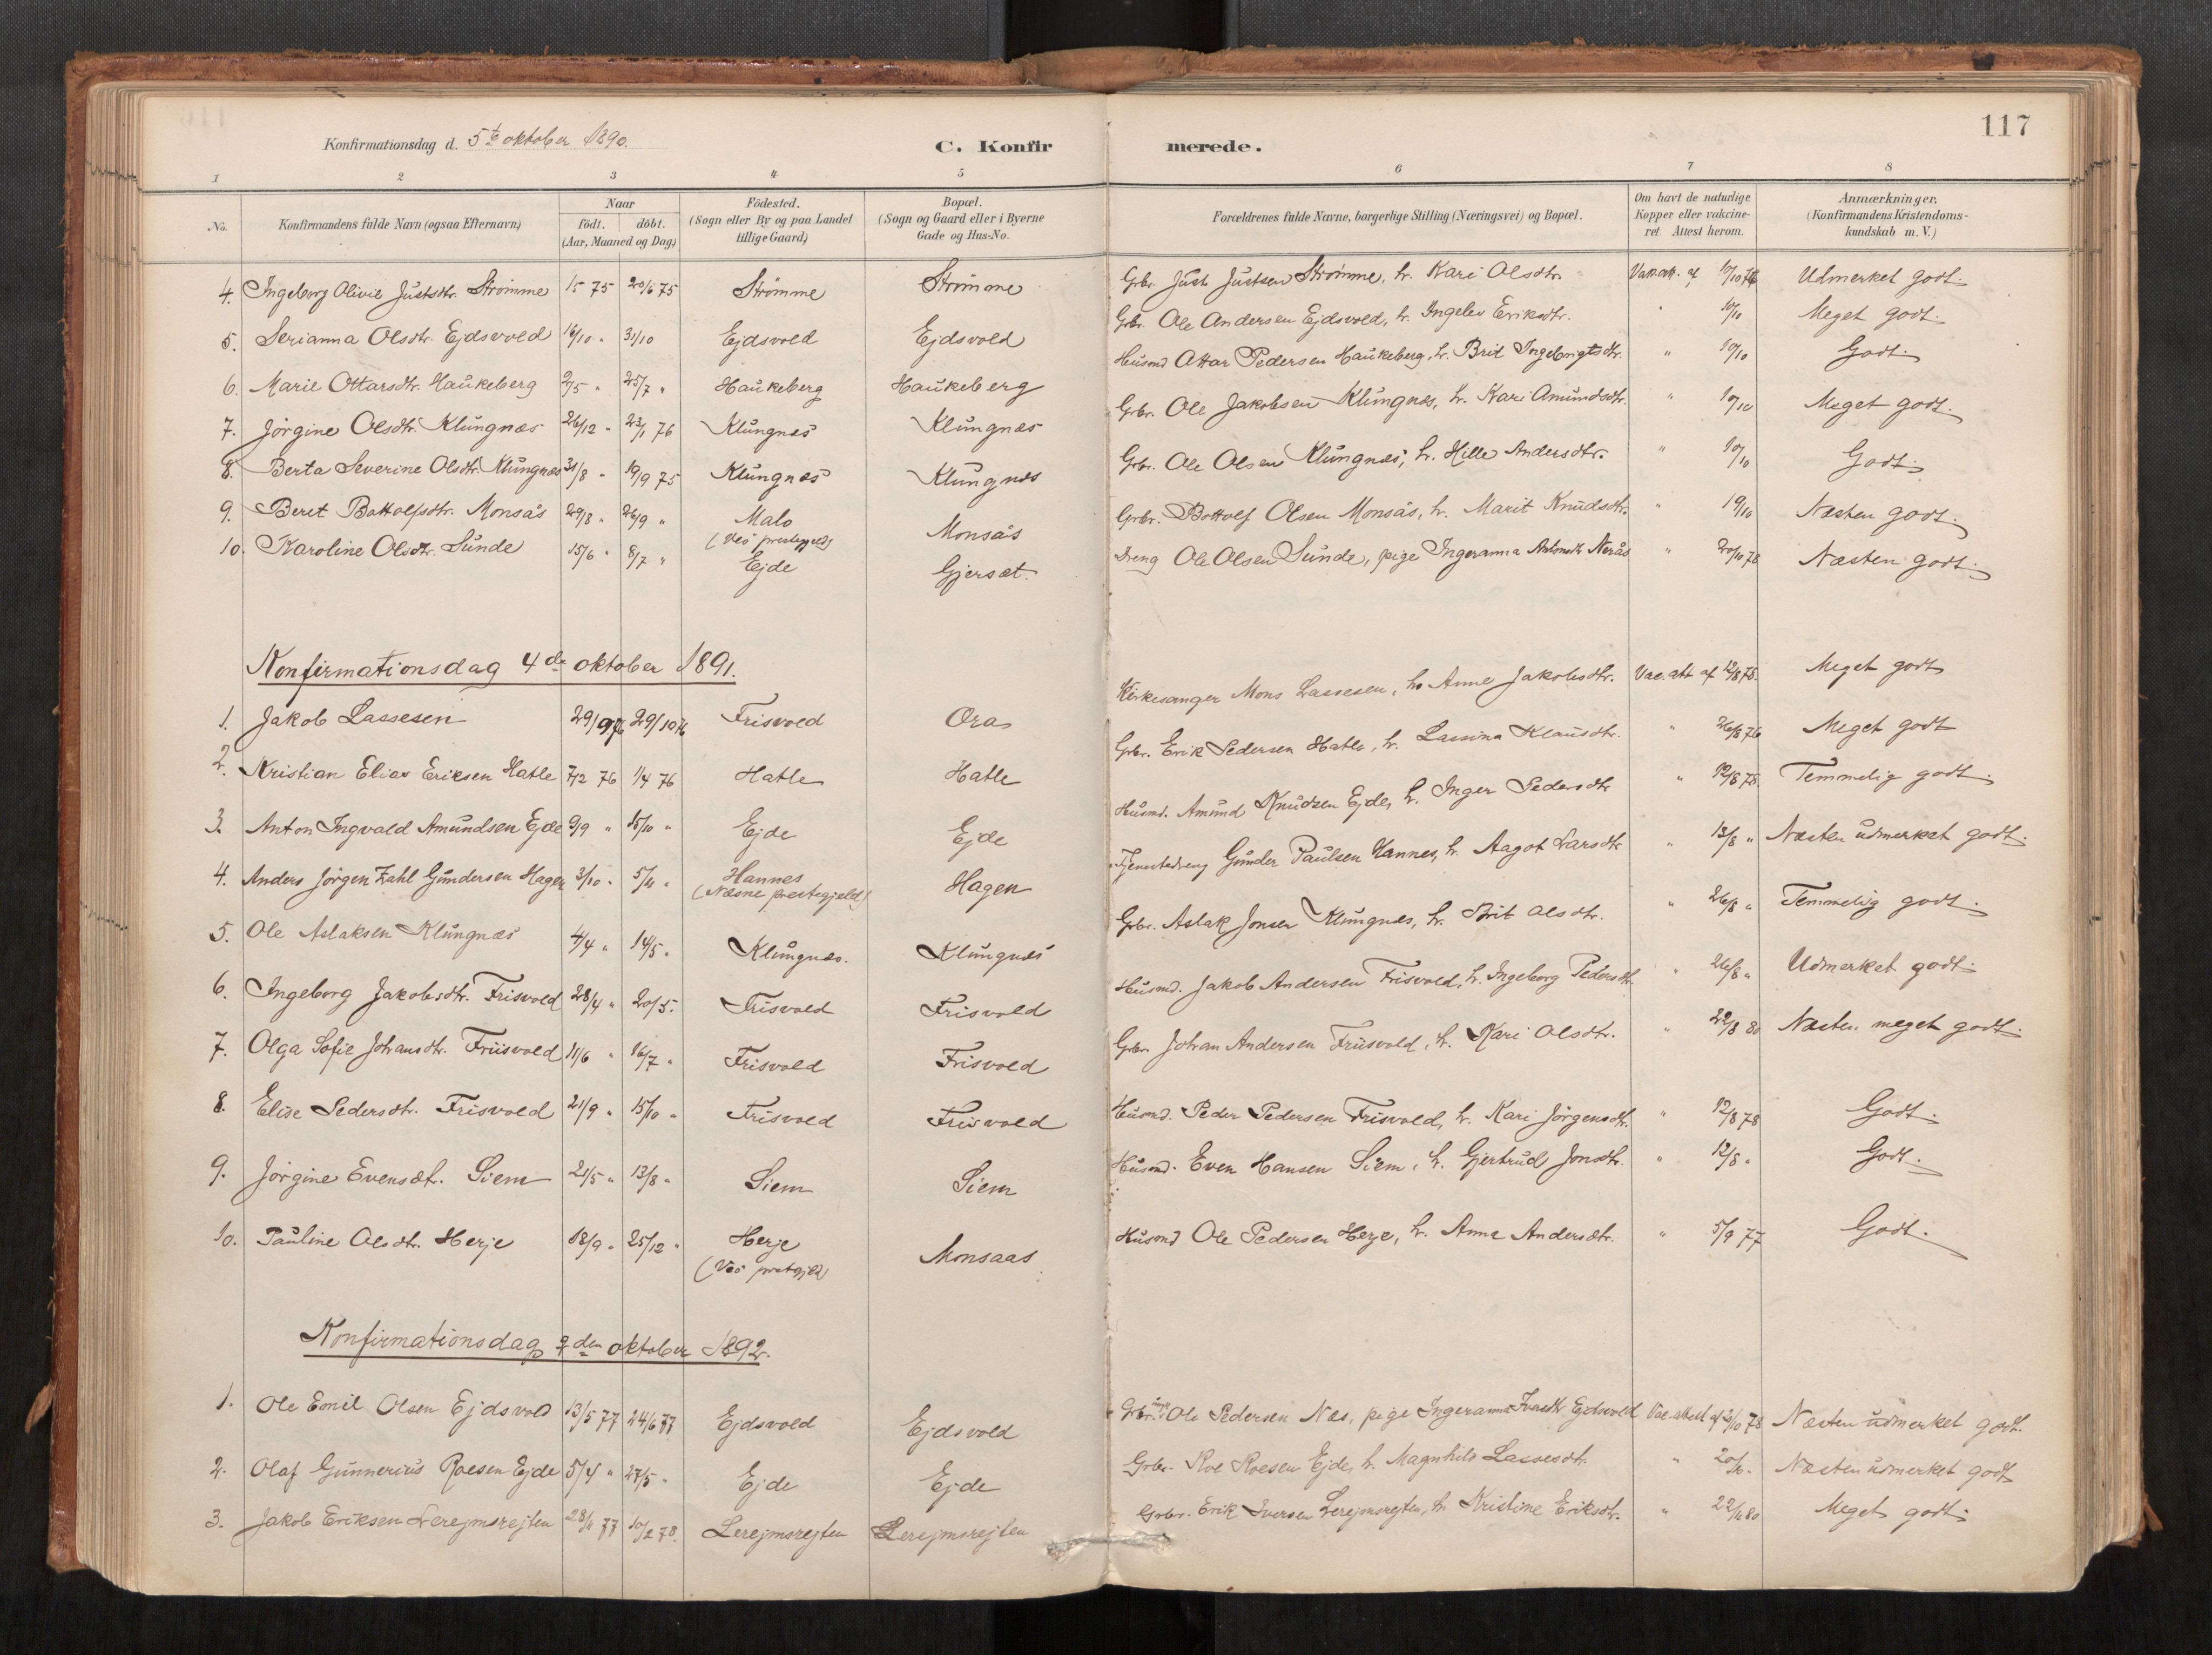 117
Konfirmationsdag d. 5te oktober 1890.
C. Konfirmerede.
1 2 3 4 5 6 7 8
No. Konfirmandens fulde Navn (ogsaa Efternavn) Naar födt. döbt. (Aar, Maaned og Dag) Födested. (Sogn eller By og paa Landet tillige Gaard) Bopæl. (Sogn og Gaard eller i Byerne Gade og Hus-No. Forældrenes fulde Navne, borgerlige Stilling (Næringsvei) og Bopæl. Om havt de naturlige Kopper eller vakcineret. Attest herom. Anmærkninger. (Konfirmandens Kristendomskundskab m. V.)
4. Ingeborg Olivie Justsdtr. Strömme 1/5 75 20/6 75 Strömme Strömme Grbr. Just Justsen Strömme, h. Kari Olsdtr. Udmerket godt.
5. Serianna Olsdtr. Ejdsvold 16/10 " 31/10 Ejdsvold Ejdsvold Gbr. Ole Andersen Ejdsvold, h. Ingelev Eriksdtr. " 10/10 Meget godt.
6. Marie Ottarsdtr. Haukeberg 2/5 " 25/7 " Haukeberg Haukeberg Husmd Ottar Pedersen Haukeberg, h. Brit Ingebrigtsdtr. " 10/10 Godt.
7. Jörgine Olsdtr. Klungnæs 26/12 " 23/1 76 Klungnæs Klungnæs Grbr. Ole Jakobsen Klungnæs, h. Kari Amundsdtr. " 10/10 Meget godt.
8. Berta Severine Olsdtr. Klungnæs 31/8 " 19/9 75 Klungnæs Klungnæs Grbr. Ole Olsen Klungnæs, h. Hille Andersdtr. " 10/10 Godt.
9. Beret Bottolfsdtr. Monsås 29/8 " 26/9 " Malo (Veö prestegjeld) Monsås Grbr. Bottolf Olsen Monsås, h. Marit Knudsdtr. " 19/10 Næsten godt.
10. Karoline Olsdtr. Sunde 15/6 " 8/7 " Ejde Gjersæt. Dreng Ole Olsen Sunde, pige Ingeranna Antonsdtr Nerås " 20/10 78 Næsten godt.
Konfirmationsdag 4de oktober 1891.
1. Jakob Lassesen 29/9 76 29/10 76 Frisvold Oras Kirkesanger Mons Lassesen, h. Anne Jakobsdtr. Vac. att af 12/8 78. Meget godt
2. Kristian Elias Eriksen Hatle 7/2 76 1/4 76 Hatle Hatle Grbr. Erik Pedersen Hatle, h. Lassina Klausdtr. " 26/8 76 Meget godt
3. Anton Ingvald Amundsen Ejde 9/9 " 15/10 " Ejde Ejde Husmd. Amund Knudsen Ejde, h. Inger Pedersdtr " 12/8 78. Temmelig godt.
4. Anders Jörgen Zahl Gundersen Hagen 3/10 " 5/11 " Hannes (Nesne prestegjeld) Hagen Tjenestedreng Gunder Paulsen Hannes, h. Aagot Larsdtr " 13/8 " Næsten udmerket godt.
5. Ole Aslaksen Klungnæs 4/4 " 14/5 " Klungnæs. Klungnæs Grbr. Aslak Jonsen Klungnæs, h. Brit Olsdtr. " 26/8 " Temmelig godt.
6. Ingeborg Jakobsdtr. Frisvold 28/4 " 20/5. Frisvold Frisvold Husmd. Jakob Andersen Frisvold, h. Ingeborg Pedersdtr. " 26/8 " Udmerket godt.
7. Olga Sofie Johansdtr. Friisvold 11/6 " 16/7 " Frisvold Frisvold Gbr. Johan Andersen Friisvold, h. Kari Olsdtr. " 22/8 80 Næsten meget godt.
8. Elise Pedersdtr. Frisvold 21/9 " 15/10 " Frisvold Frisvold Husmd. Peder Pedersen Frisvold, h. Kari Jörgensdtr. " 12/8 78 Godt.
9. Jörgine Evensdtr. Siem 21/5 " 13/8 " Siem Siem Husmd. Even Hansen Siem, h. Gjertrud Jonsdtr. " 12/8 " Godt.
10. Pauline Olsdtr. Herje 18/9 " 25/12 " Herje (Veö prstgjeld) Monsaas Husmd Ole Pedersen Herje, h. Anne Andersdtr. " 5/9 77 Godt.
Konfirmationsdag den oktober 1892.
1. Ole Emil Olsen Ejdsvold 13/5 77 24/6 77 Ejdsvold Ejdsvold Ole Pedersen Næs, pige Ingeranna Iversdtr Ejdsvold Vac. attest af Næsten udmerket godt.
2. Olaf Gunnerius Roesen Ejde 5/4 " 27/5 " Ejde Ejde Grbr. Roe Roesen Ejde, h. Magnhild Lassesdtr. " Næsten udmerket godt
3. Jakob Eriksen Lerejmsrejten 28/11 77 10/2 78. Lerejmsrejten Lerejmsrejten Grbr. Erik Iversen Lerejmsrejten, h. Kristine Eriksdtr. " Meget godt.